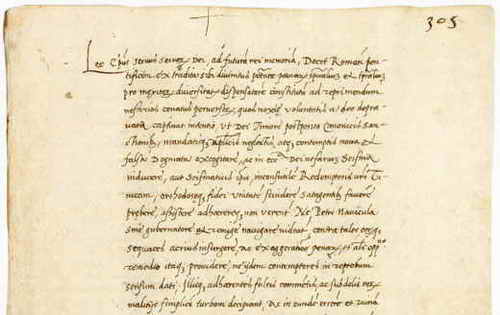 Leo Ep̄us servus servor Dei, ad futurā rei memoriā, Decet Romanū pon-
tificem ex tradita sibi divinitus potate penar spiritualiū et tp̄aliū
pro meritor diversitate dispensatorē constitutū ad reprimendum
nefarios conatus perversor, quos noxie voluntatis a deo depra-
vata captivat intentio, ut Dei Timore postposito Canonicis San-
ctionib, mandatisq aplicis neglectis, atq, contemptis nova et
falsa Dogmata excogitare, ac in ecc Dei nefariū Scisma
inducere, aut Scismaticis ip̄is, inconsutile Redemptoris nr̄i Tu-
nicam, orthodoxeq, fidei unitatē scindere satagentib, favere
prebere, assistere adhaerereq, non verent Ne Petri Navicula
sine gubernatore et remige navigare videat, contra tales eorq,
sequaces acrius insurgere, ac exaggeratione penar, et als opp
remedio itaq, providere ne ijdem contemptores in reprobum
sensum dati, illisq, adherentes falsis comētis, ac subdolis eor
malitijs simplicē turbam decipiant, ac in eundē errorē et ruinā
305